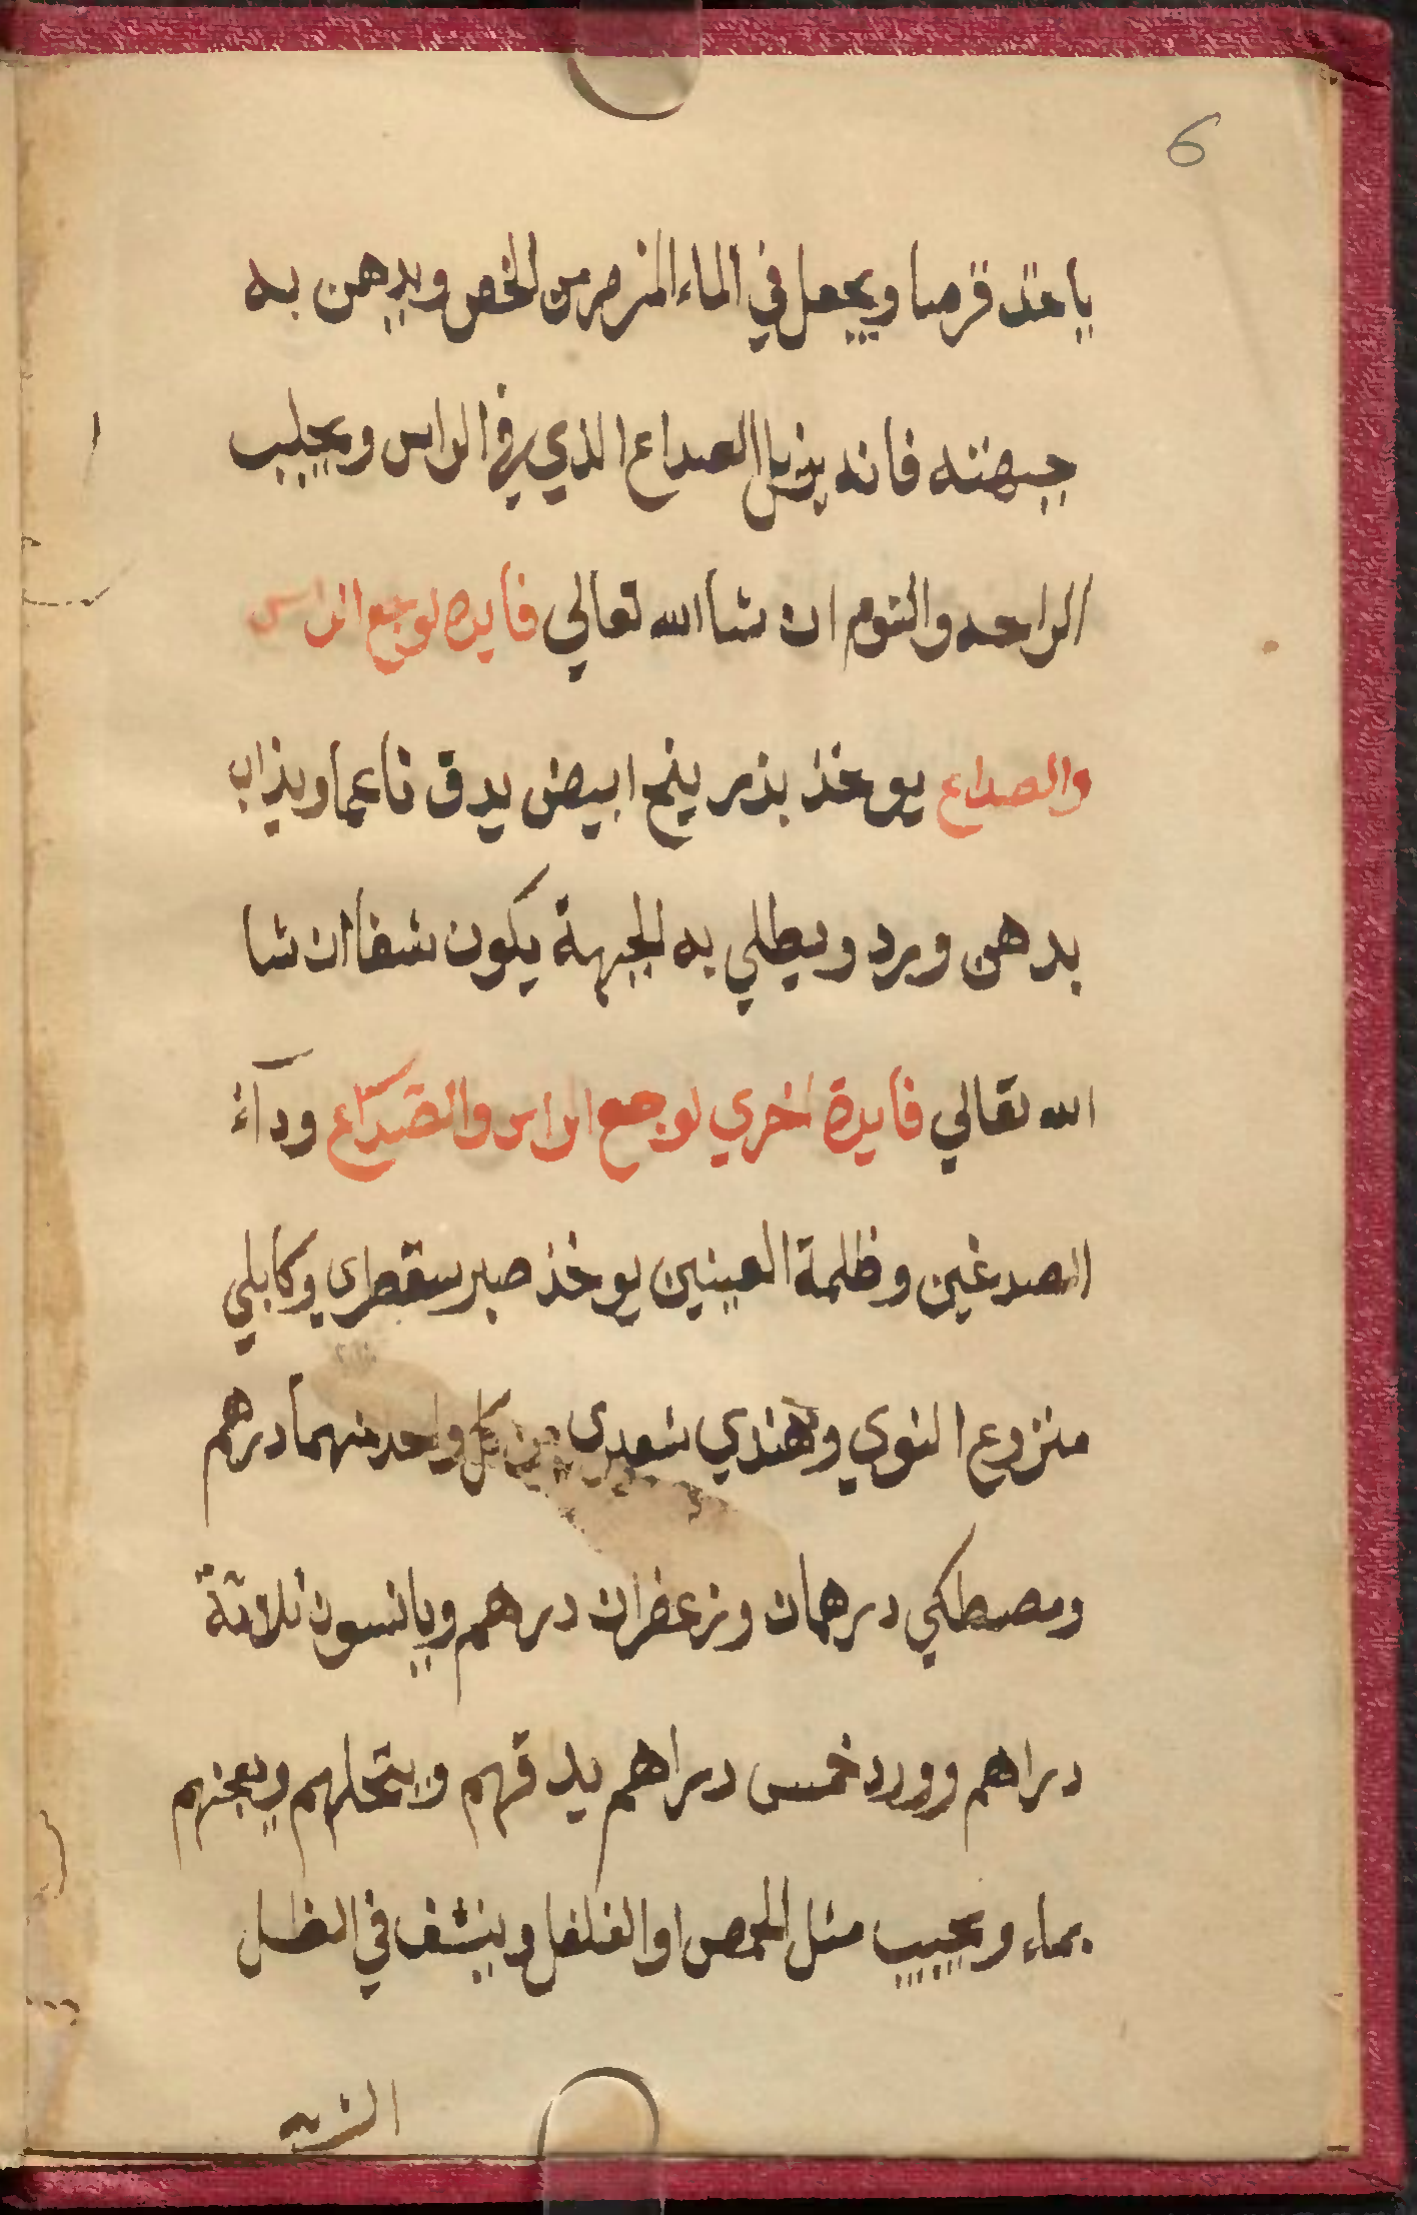 6
ياخذ قرصا ويجعل في الماء المزمر من الخص ويدهن به
جبهته فانه يزيل الصداع الذي في الراس ويجلب
الراحه والنوم ان شا الله تعالي فايده لوجع الراس
والصداع يوخذ بذر بنج ابيض يدق ناعما ويذاب
بدهن ورد ويطلي به الجبهة يكون شفا ان شا
الله تعالي فايدة اخري لوجع الراس والصداع ودآء
الصدغين وظلمة العينين يوخذ صبر سقطري وكابلي
منزوع النوي وهندي شعيري من كل واحد منهما درهم
ومصطكي درهمان وزعفران درهم ويانسون ثلاثة
دراهم وورد خمس دراهم يدقهم وينخلهم ويعجنهم
بماء ويحبب مثل الحمص او الفلفل وينشف في الظل